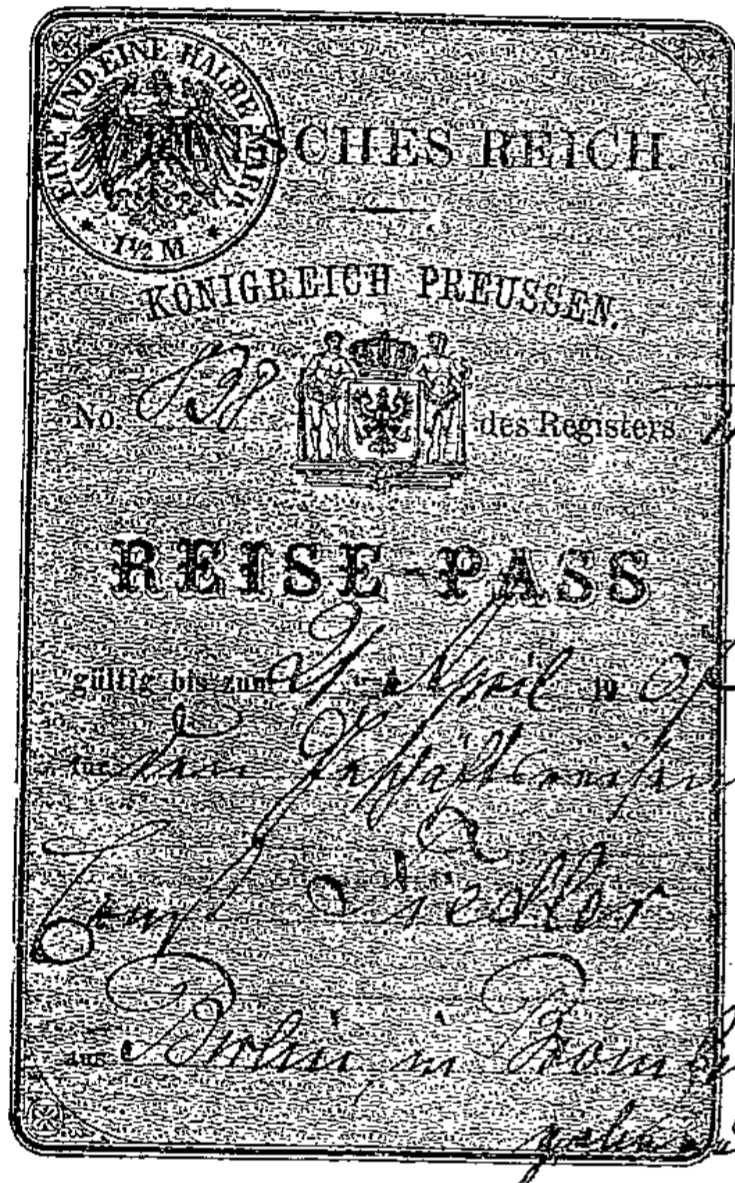 EINE UND EINE HALBE MARK
* 1½ M. *
DEUTSCHES REICH.
KÖNIGREICH PREUSSEN.
No. 838 des Registers
REISE-PASS
gültig bis zum 21. April 19
für den Geschäftsreisen
Fiedler
aus Berlin in